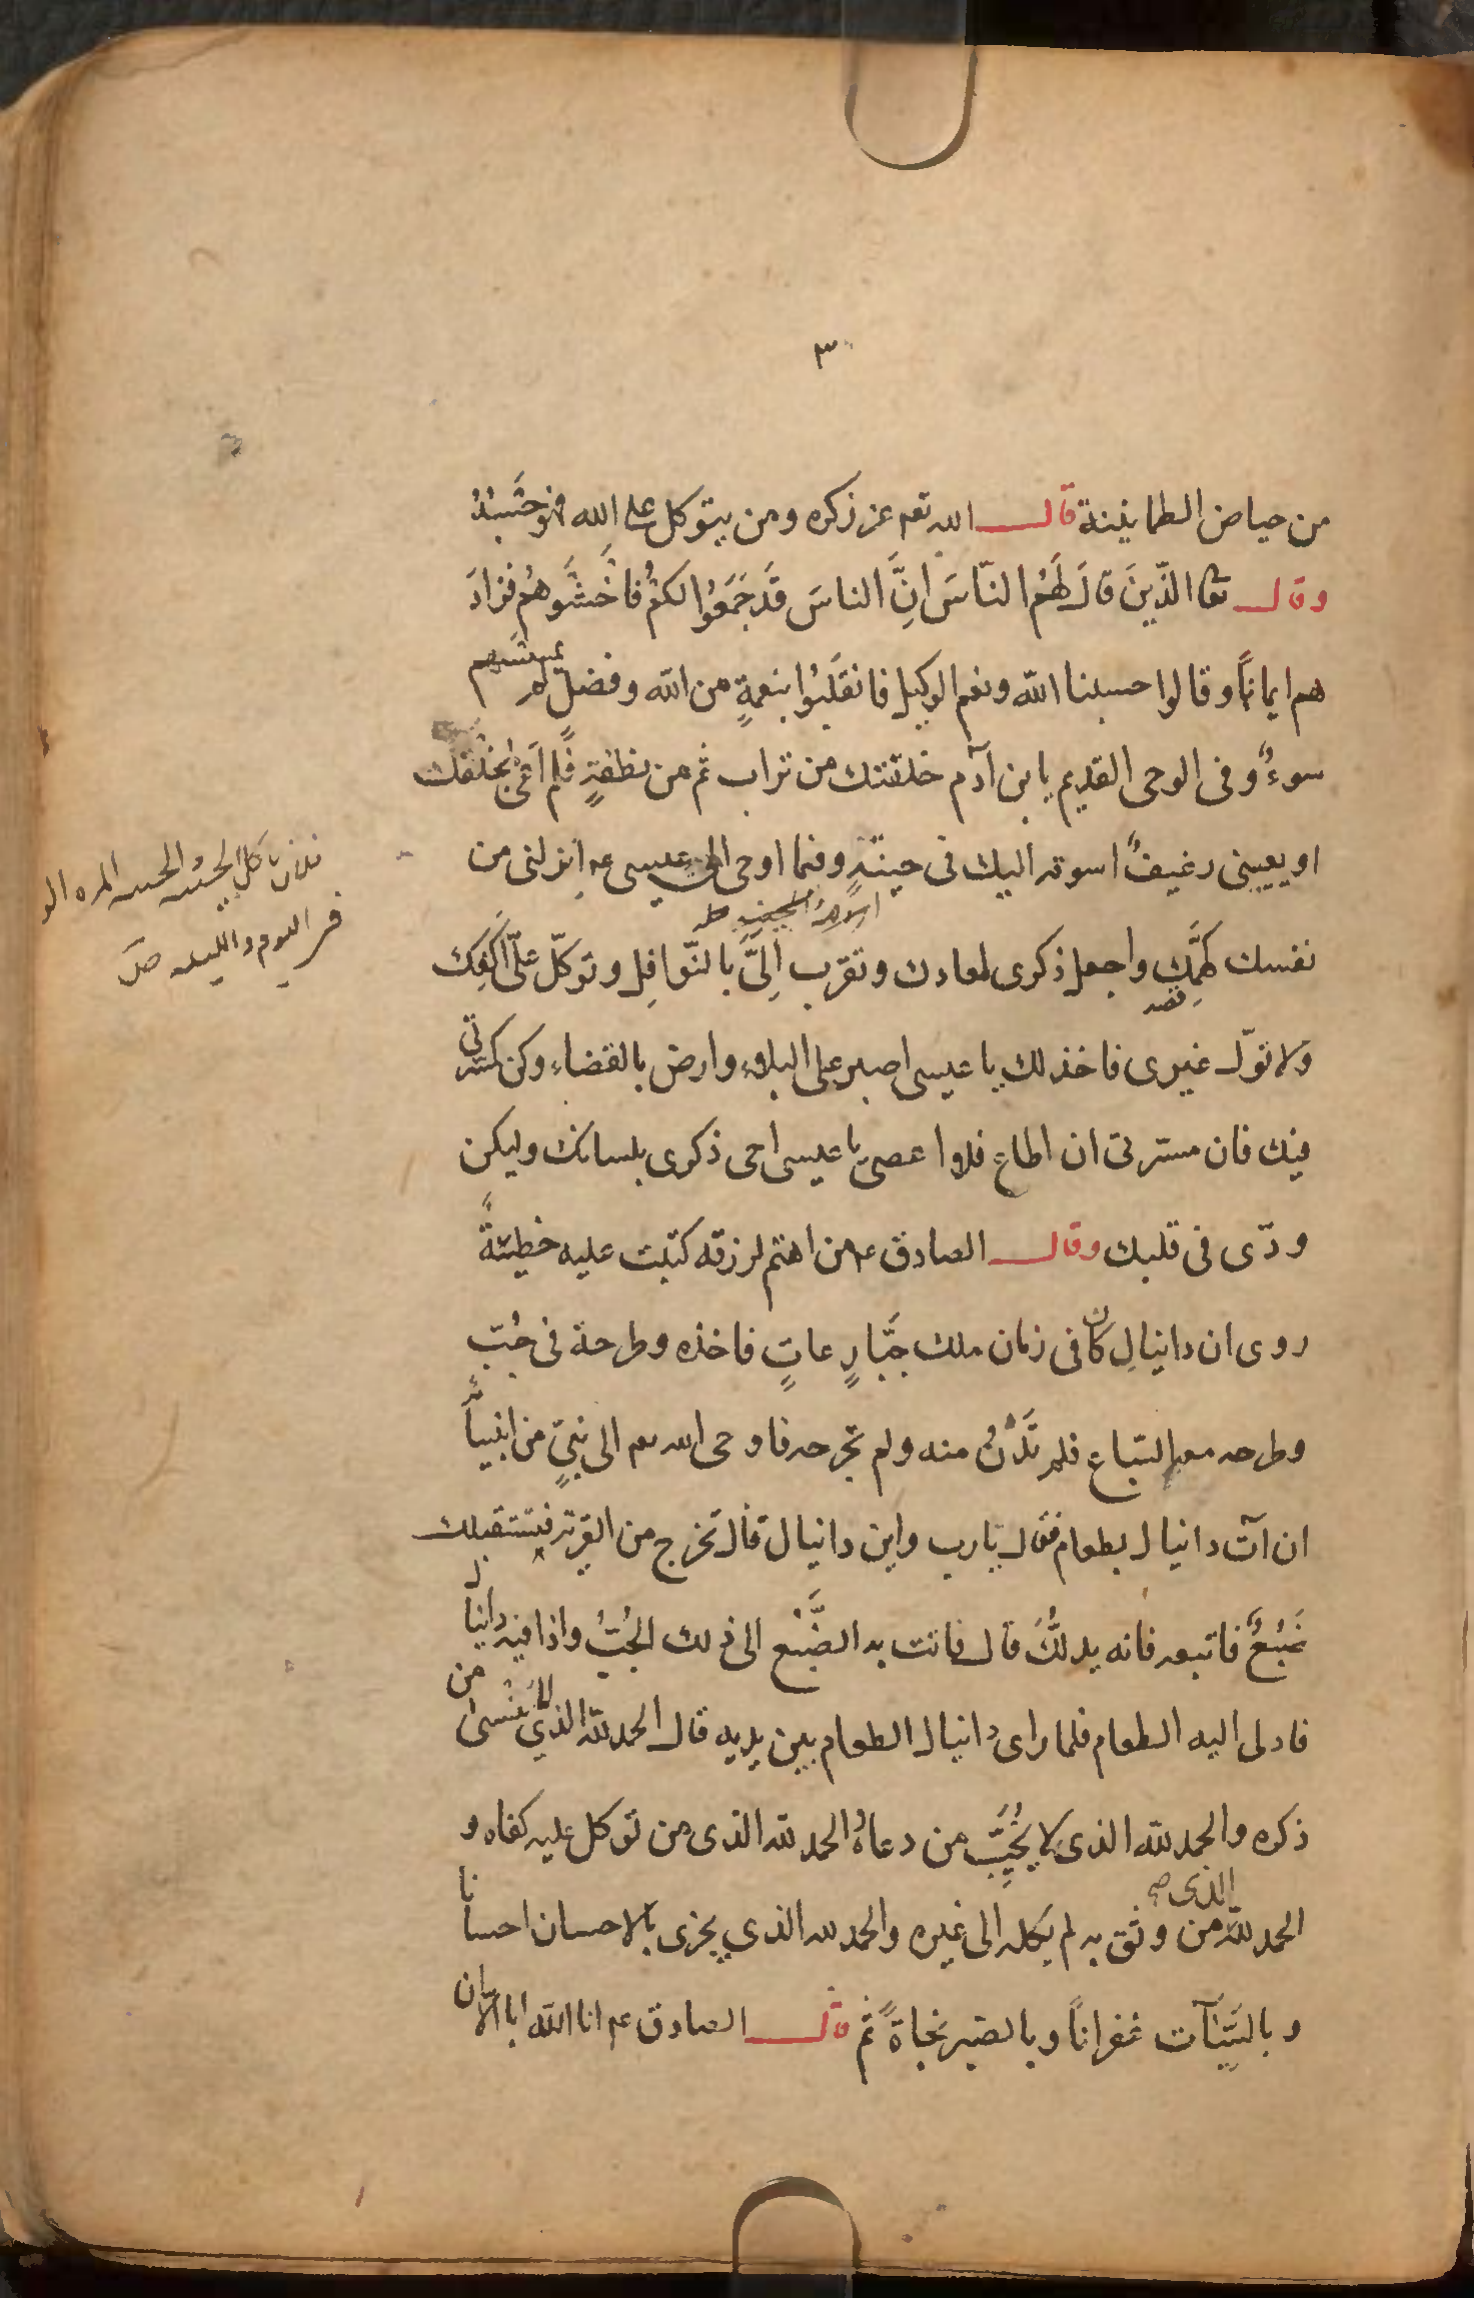 ٣
من حياض الطمانينة قال الله تعم عز ذكره ومن يتوكل على الله فهو حَسْبُهُ
وقال تعا الّذينَ قالَ لَهُمُ النّاسَ انَّ الناسَ قَد جَمَعُوا لكُمْ فاخْشَوهُم فزادَ
هم ايماناً وقالوا حسبنا الله ونعم الوكيل فانقَلَبُوا بنعمةٍ من الله وفضل لم يمسسهم
سوءٌ وفى الوحى القديم يا بن آدم خلقتك من تراب ثم من نطفةٍ فلم اَعْىَ بخَلْقك
او يعيينى رغيفٌ اسوقه اليك فى حينَةٍ وفيما اوحى الى عيسى عم انزلنى من
نفسك كهَمِّك واجعل ذكرى لمعادك وتقرب اِلَىَّ بالنّوافِل وتوكّل علىّ اَكْفِك
ولا تولّ غيرى فاخذلك يا عيسى اصبر على البلاء وارض بالقضاء وكن كمسرتى
فيك فان مسترتى ان اطاع فلا اعصى يا عيسى احى ذكرى بلسانك وليكن
ودّى فى قلبك وقال الصادق عم من اهتم لرزقه كتبت عليه خطيئةً
روى ان دانيالِ كان فى زمان ملك جَبَّارٍ عاتٍ فاخذه وطرحة فى جُبّ
وطرحه معه السّباع فلم تَدْنُ منه ولم تجرحه فاوحى الله تعم الى نبىٍّ من انبيائه
ان آت دانيال بطعام فقال يارب واين دانيال قال تخرج من القرية فيستقبلك
ضَبُعٌ فاتبعه فانه يدلُّكَ قال فاتت به الضَّبْع الى ذلك الجُبِّ واذا فيه دانيال
فادلى اليه الطعام فلما راى دانيال الطعام بين يديه قال الحمد لله الذي لا يَنْسىٰ من
ذكره والحمد لله الذى لا يُخَيِّبُ من دعاهُ الحمد لله الذى من توكل عليه كفاه و
الحمد لله الذى من وثق به لم يكله الى غيره والحمد لله الذي يجزى بالاحسان احسانا
وبالسَّيِّئآت غفراناً وبالصبر نجاةً ثم قال الصادق عم انا الله ابا الا ان
فلان ياكل
فى اليوم والليله